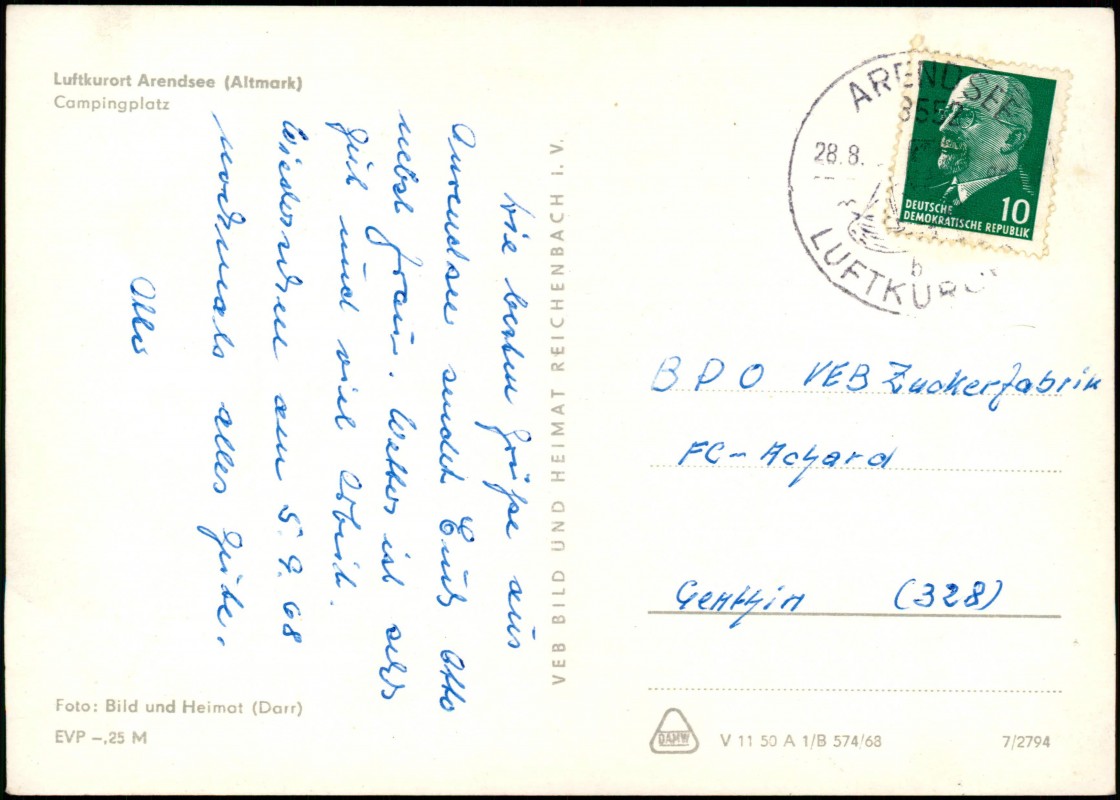 Luftkurort Arendsee (Altmark)
Campingplatz
Die besten Grüße aus
Arendsee sendet Euch Otto
nebst Frau. Wetter ist sehr
gut und viel Arbeit.
Wiedersehen am 5.9.68
nochmals alles Gute.
Otto
Foto: Bild und Heimat (Darr)
EVP -,25 M
VEB BILD UND HEIMAT REICHENBACH i. V.
ARENDSEE
28.8.
b
LUFTKURO
DEUTSCHE
DEMOKRATISCHE REPUBLIK
10
BPO VEB Zuckerfabrik
FC-Achard
Genthin (328)
DAMW
V 11 50 A 1/B 574/68
7/2794